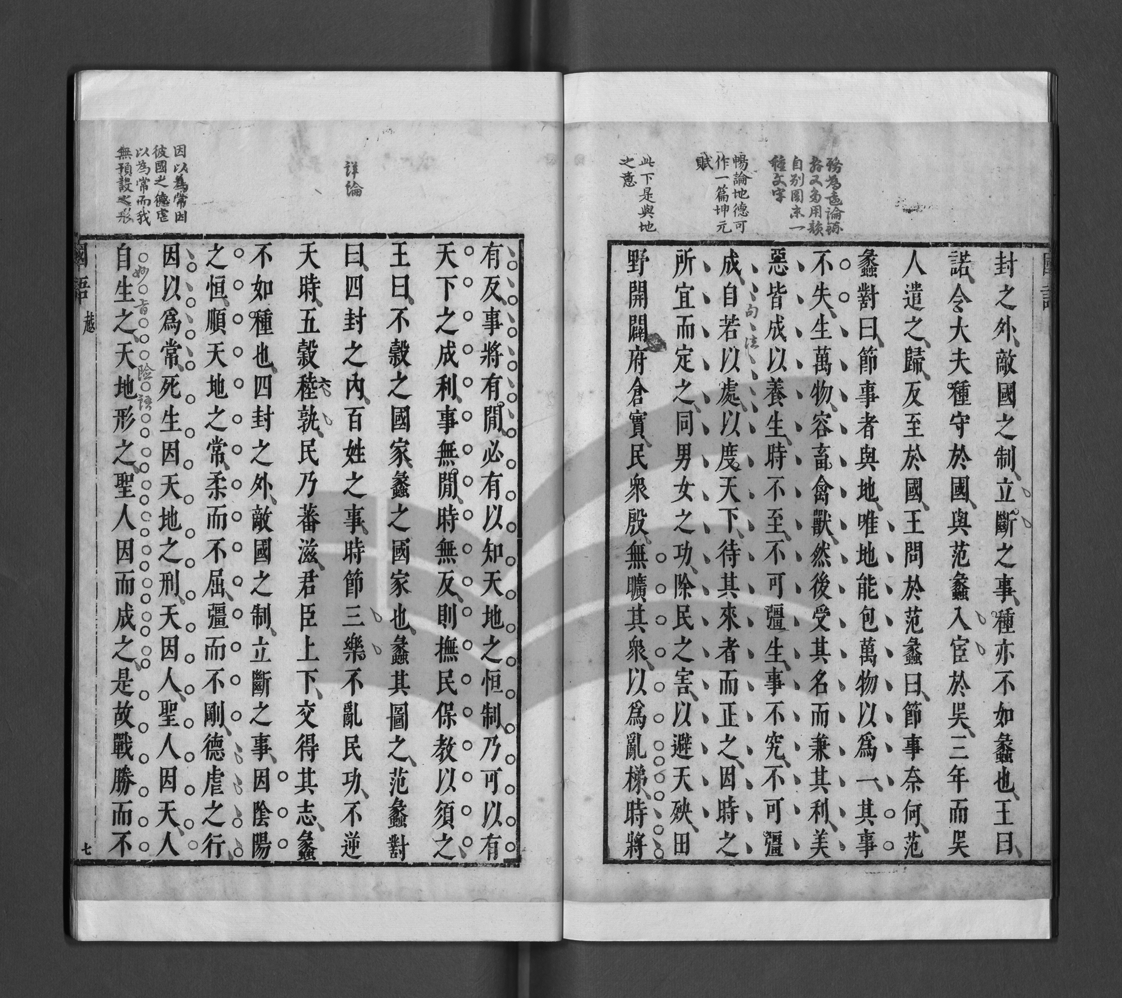 此下是與地
之意
暢論地德可
作一篇坤元
賦
封之外敵國之制立斷之事種亦不如蠡也王曰
諾令大夫種守於國與范蠡入宦於吳三年而吳
人遣之歸反至於國王問於范蠡曰節事奈何范
蠡對曰節事者與地唯地能包萬物以爲一其事
不失生萬物容畜禽獸然後受其名而兼其利美
惡皆成以養生時不至不可彊生事不究不可彊
成自若以處以度天下待其來者而正之因時之
所宜而定之同男女之功除民之害以避天殃田
野開闢府倉實民衆殷無曠其衆以爲亂梯時將
詳論
因以為常因
彼國之德虐
以為常而我
無預設之形
有反事將有閒必有以知天地之恒制乃可以有
天下之成利事無閒時無反則撫民保教以須之
王曰不穀之國家蠡之國家也蠡其圖之范蠡對
曰四封之內百姓之事時節三樂不亂民功不逆
天時五穀稑孰民乃蕃滋君臣上下交得其志蠡
不如種也四封之外敵國之制立斷之事因陰陽
之恒順天地之常柔而不屈彊而不剛德虐之行
因以爲常死生因天地之刑天因人聖人因天人
自生之天地形之聖人因而成之是故戰勝而不
妙言險語
國語 越
七